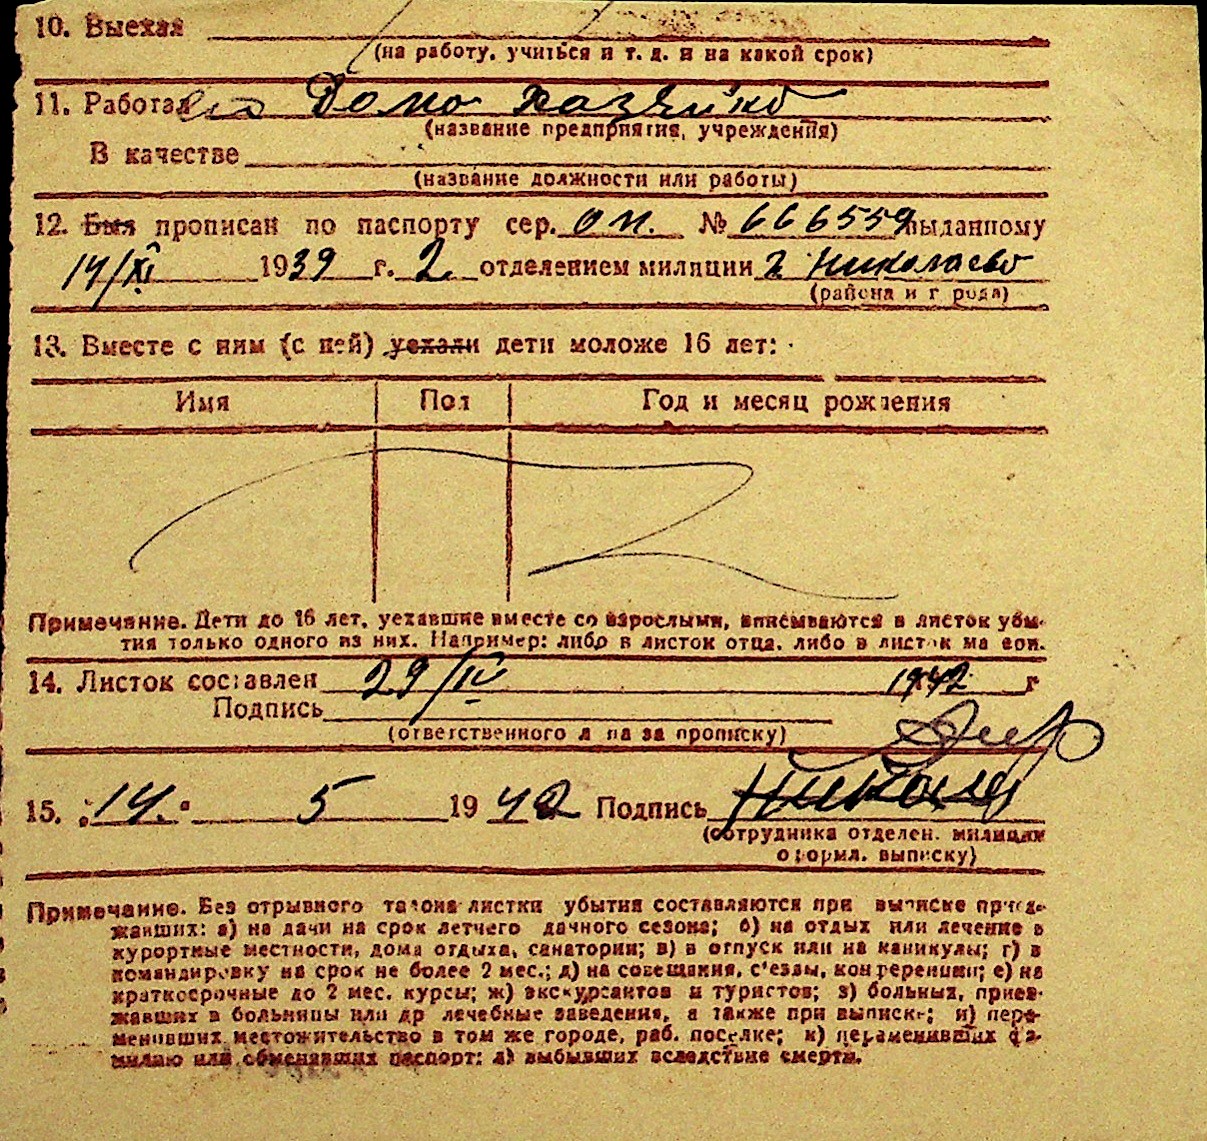 10. Выехал
(на работу, учиться и т. д. и на какой срок)
11. Работал Домо хазяйко
(название предприятия, учреждения)
В качестве
(название должности или работы)
12. Был прописан по паспорту сер. ОП. № 666559 выданному
14/XI 1939 г. 2 отделением милиции г. Николаево
(района и города)
13. Вместе с ним (с ней) уехали дети моложе 16 лет:
Имя Пол Год и месяц рождения
Примечание. Дети до 16 лет, уехавшие вместе со взрослыми, вписываются в листок убы-
тия только одного из них. Например: либо в листок отца, либо в листок матери.
14. Листок составлен 29/IV 1942 г
Подпись
(ответственного лица за прописку)
15. 14. 5 1942 Подпись
(сотрудника отделен. милиции
оформл. выписку)
Примечание. Без отрывного талона листки убытия составляются при выписке приез-
жавших: а) на дачи на срок летнего дачного сезона; б) на отдых или лечение в
курортные местности, дома отдыха, санатории; в) в отпуск или на каникулы; г) в
командировку на срок не более 2 мес.; д) на совещания, с'езды, конференции; е) на
краткосрочные до 2 мес. курсы; ж) экскурсантов и туристов; з) больных, приез-
жавших в больницы или др лечебные заведения, а также при выписке; и) пере-
менивших местожительство в том же городе, раб. поселке; к) переменивших фа-
милию или обменявших паспорт; л) выбывших вследствие смерти.